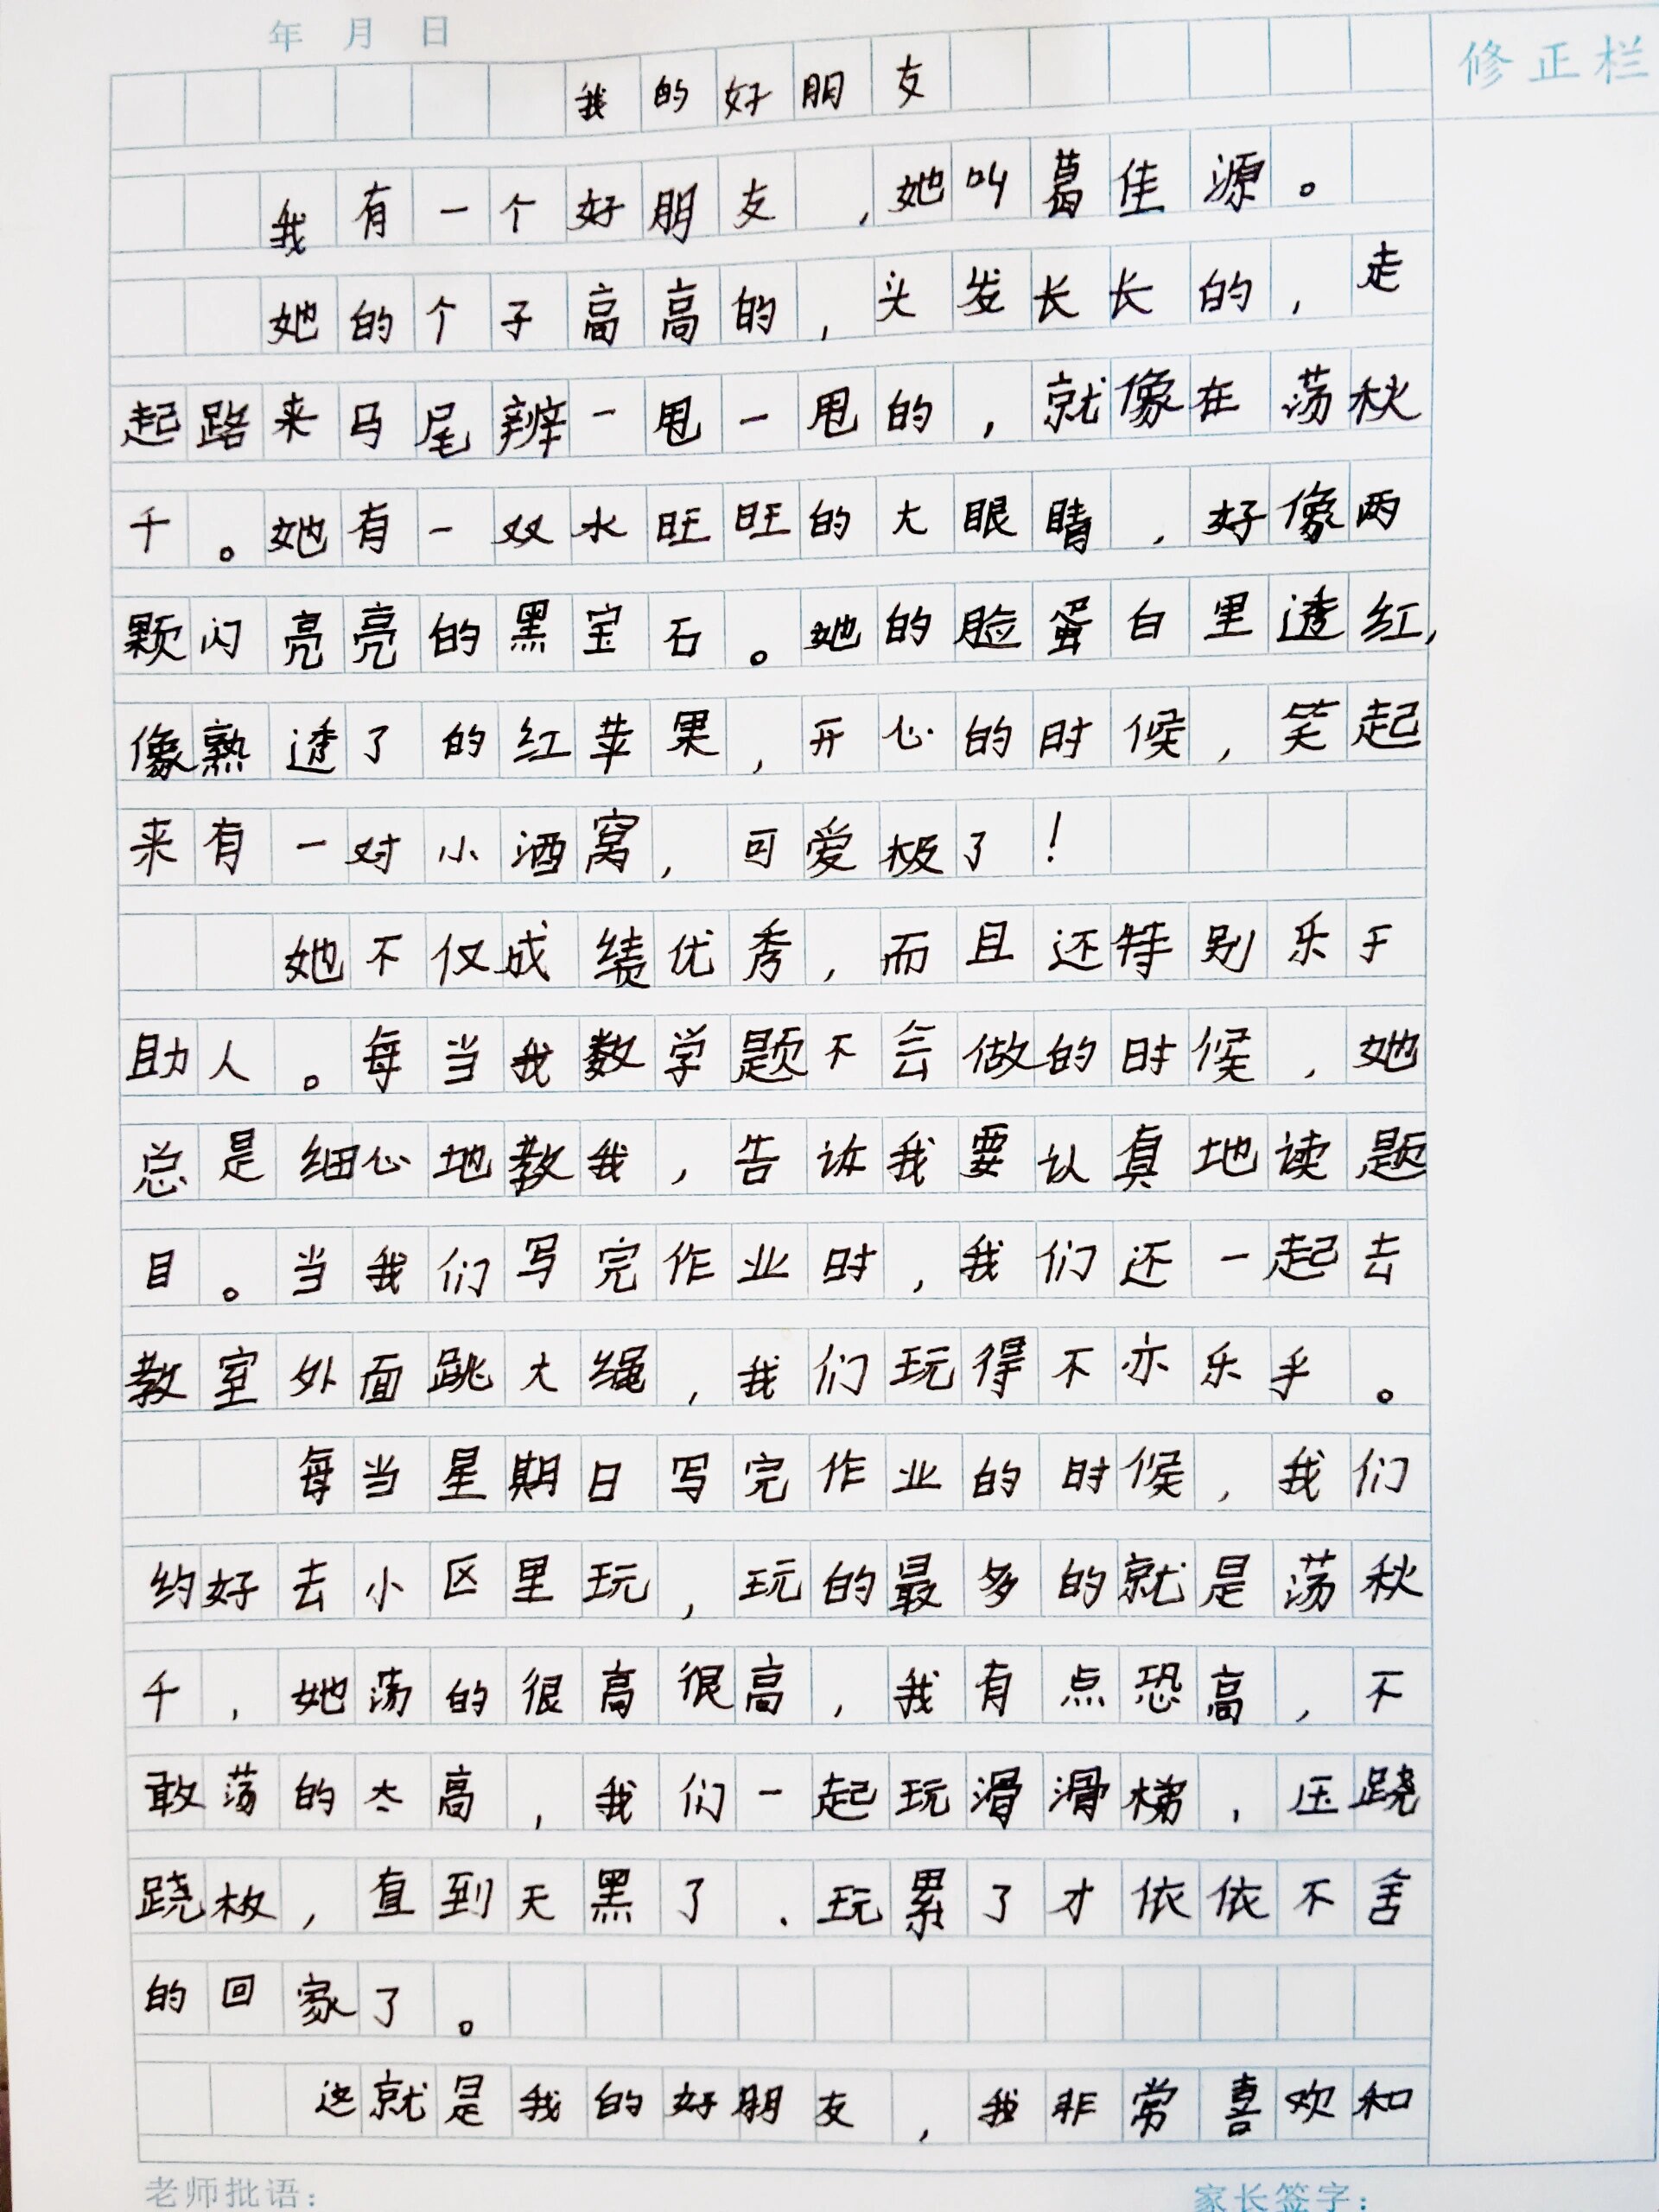 年 月 日
修正栏
我的好朋友
我有一个好朋友，她叫葛佳源。
她的个子高高的，头发长长的，走
起路来马尾辫一甩一甩的，就像在荡秋
千。她有一双水旺旺的大眼睛，好像两
颗闪亮亮的黑宝石。她的脸蛋白里透红，
像熟透了的红苹果，开心的时候，笑起
来有一对小酒窝，可爱极了！
她不仅成绩优秀，而且还特别乐于
助人。每当我数学题不会做的时候，她
总是细心地教我，告诉我要认真地读题
目。当我们写完作业时，我们还一起去
教室外面跳大绳，我们玩得不亦乐乎。
每当星期日写完作业的时候，我们
约好去小区里玩，玩的最多的就是荡秋
千，她荡的很高很高，我有点恐高，不
敢荡的太高，我们一起玩滑滑梯，压跷
跷板，直到天黑了、玩累了才依依不舍
的回家了。
这就是我的好朋友，我非常喜欢和
老师批语：
家长签字：